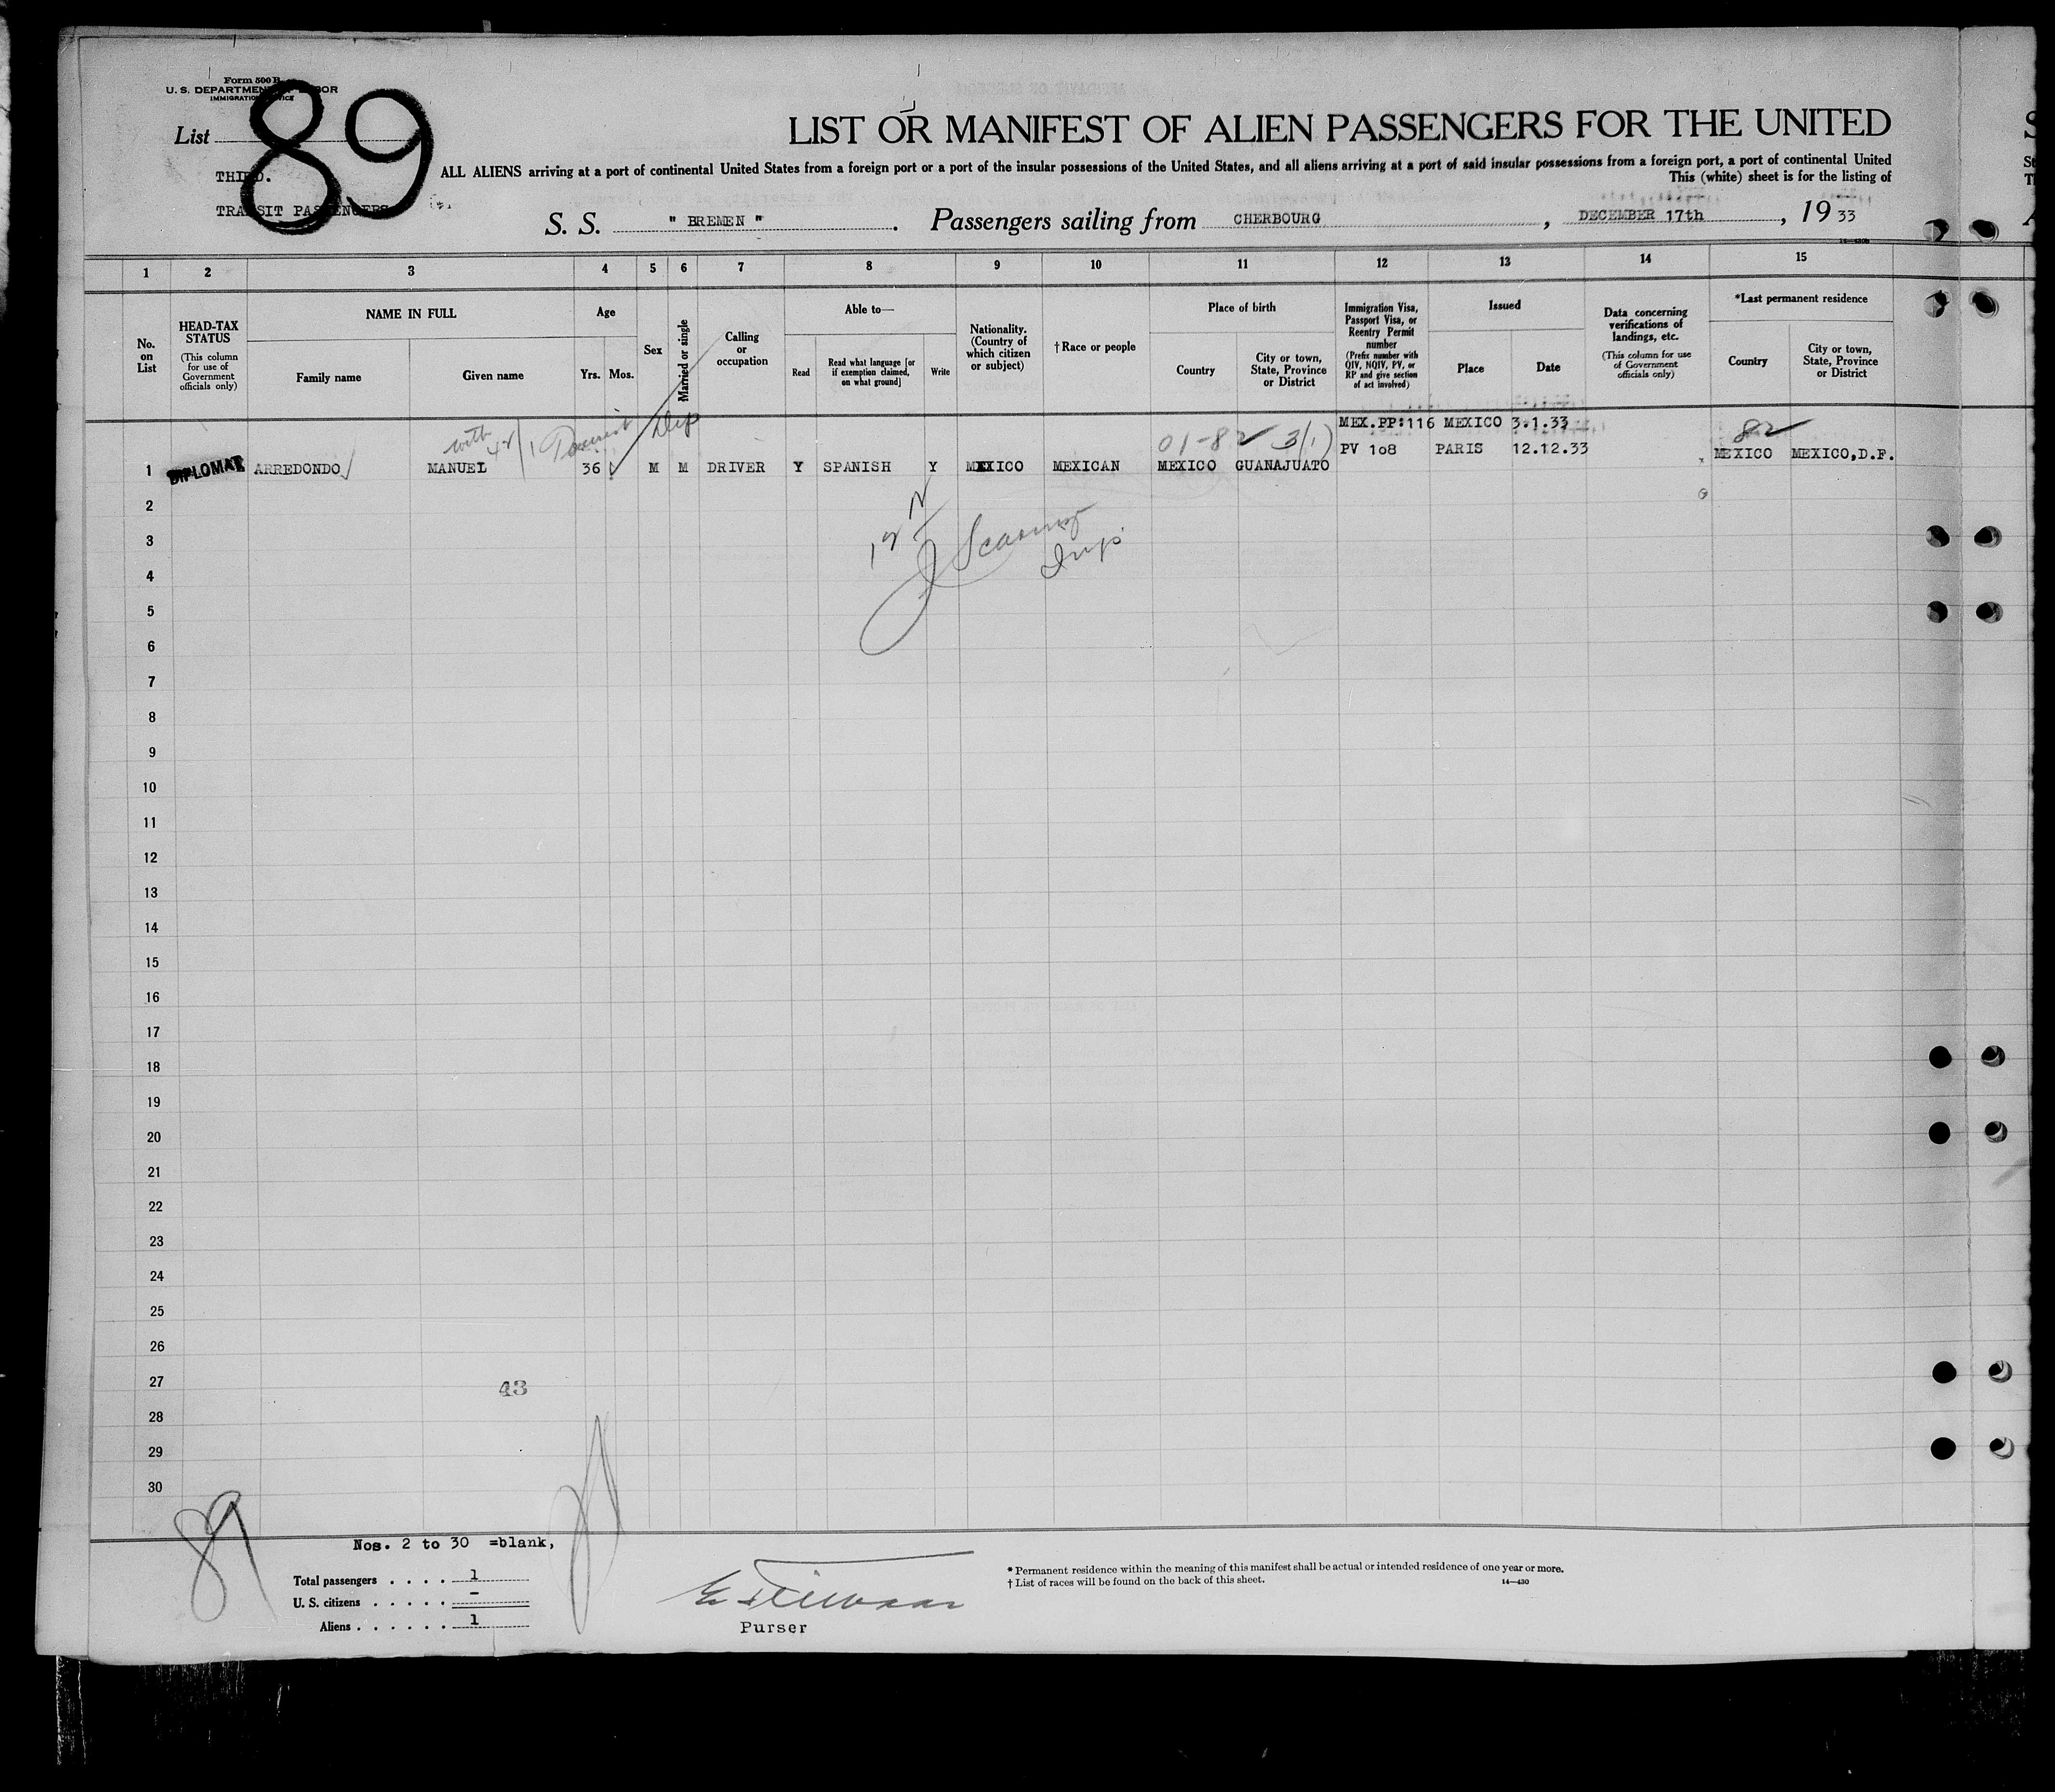 Form 500 B
U. S. DEPARTMENT OF LABOR
IMMIGRATION SERVICE
List
89
THIRD.
TRANSIT PASSENGERS
LIST OR MANIFEST OF ALIEN PASSENGERS FOR THE UNITED
ALL ALIENS arriving at a port of continental United States from a foreign port or a port of the insular possessions of the United States, and all aliens arriving at a port of said insular possessions from a foreign port, a port of continental United
This (white) sheet is for the listing of
S. S. " BREMEN " . Passengers sailing from CHERBOURG , DECEMBER 17th , 19 33
1 2 3 4 5 6 7 8 9 10 11 12 13 14 15
No. on List
HEAD-TAX STATUS
(This column for use of Government officials only)
NAME IN FULL
Family name
Given name
Age
Yrs.
Mos.
Sex
Married or single
Calling or occupation
Able to—
Read
Read what language [or if exemption claimed, on what ground]
Write
Nationality. (Country of which citizen or subject)
†Race or people
Place of birth
Country
City or town, State, Province or District
Immigration Visa, Passport Visa, or Reentry Permit number
(Prefix number with QIV, NQIV, PV, or RP and give section of act involved)
Issued
Place
Date
Data concerning verifications of landings, etc.
(This column for use of Government officials only)
*Last permanent residence
Country
City or town, State, Province or District
with
Dip
01-82 3/1)
MEX.PP:116 MEXICO 3.1.33
82
PV 108 PARIS 12.12.33
1 DIPLOMAT ARREDONDO MANUEL 36 M M DRIVER Y SPANISH Y MEXICO MEXICAN MEXICO GUANAJUATO MEXICO MEXICO,D.F.
2
3
Insp
4
5
6
7
8
9
10
11
12
13
14
15
16
17
18
19
20
21
22
23
24
25
26
27
43
28
29
30
89
Nos. 2 to 30 =blank,
Total passengers . . . . 1
U. S. citizens . . . . . –
Aliens . . . . . . 1
Purser
* Permanent residence within the meaning of this manifest shall be actual or intended residence of one year or more.
† List of races will be found on the back of this sheet.
14—430